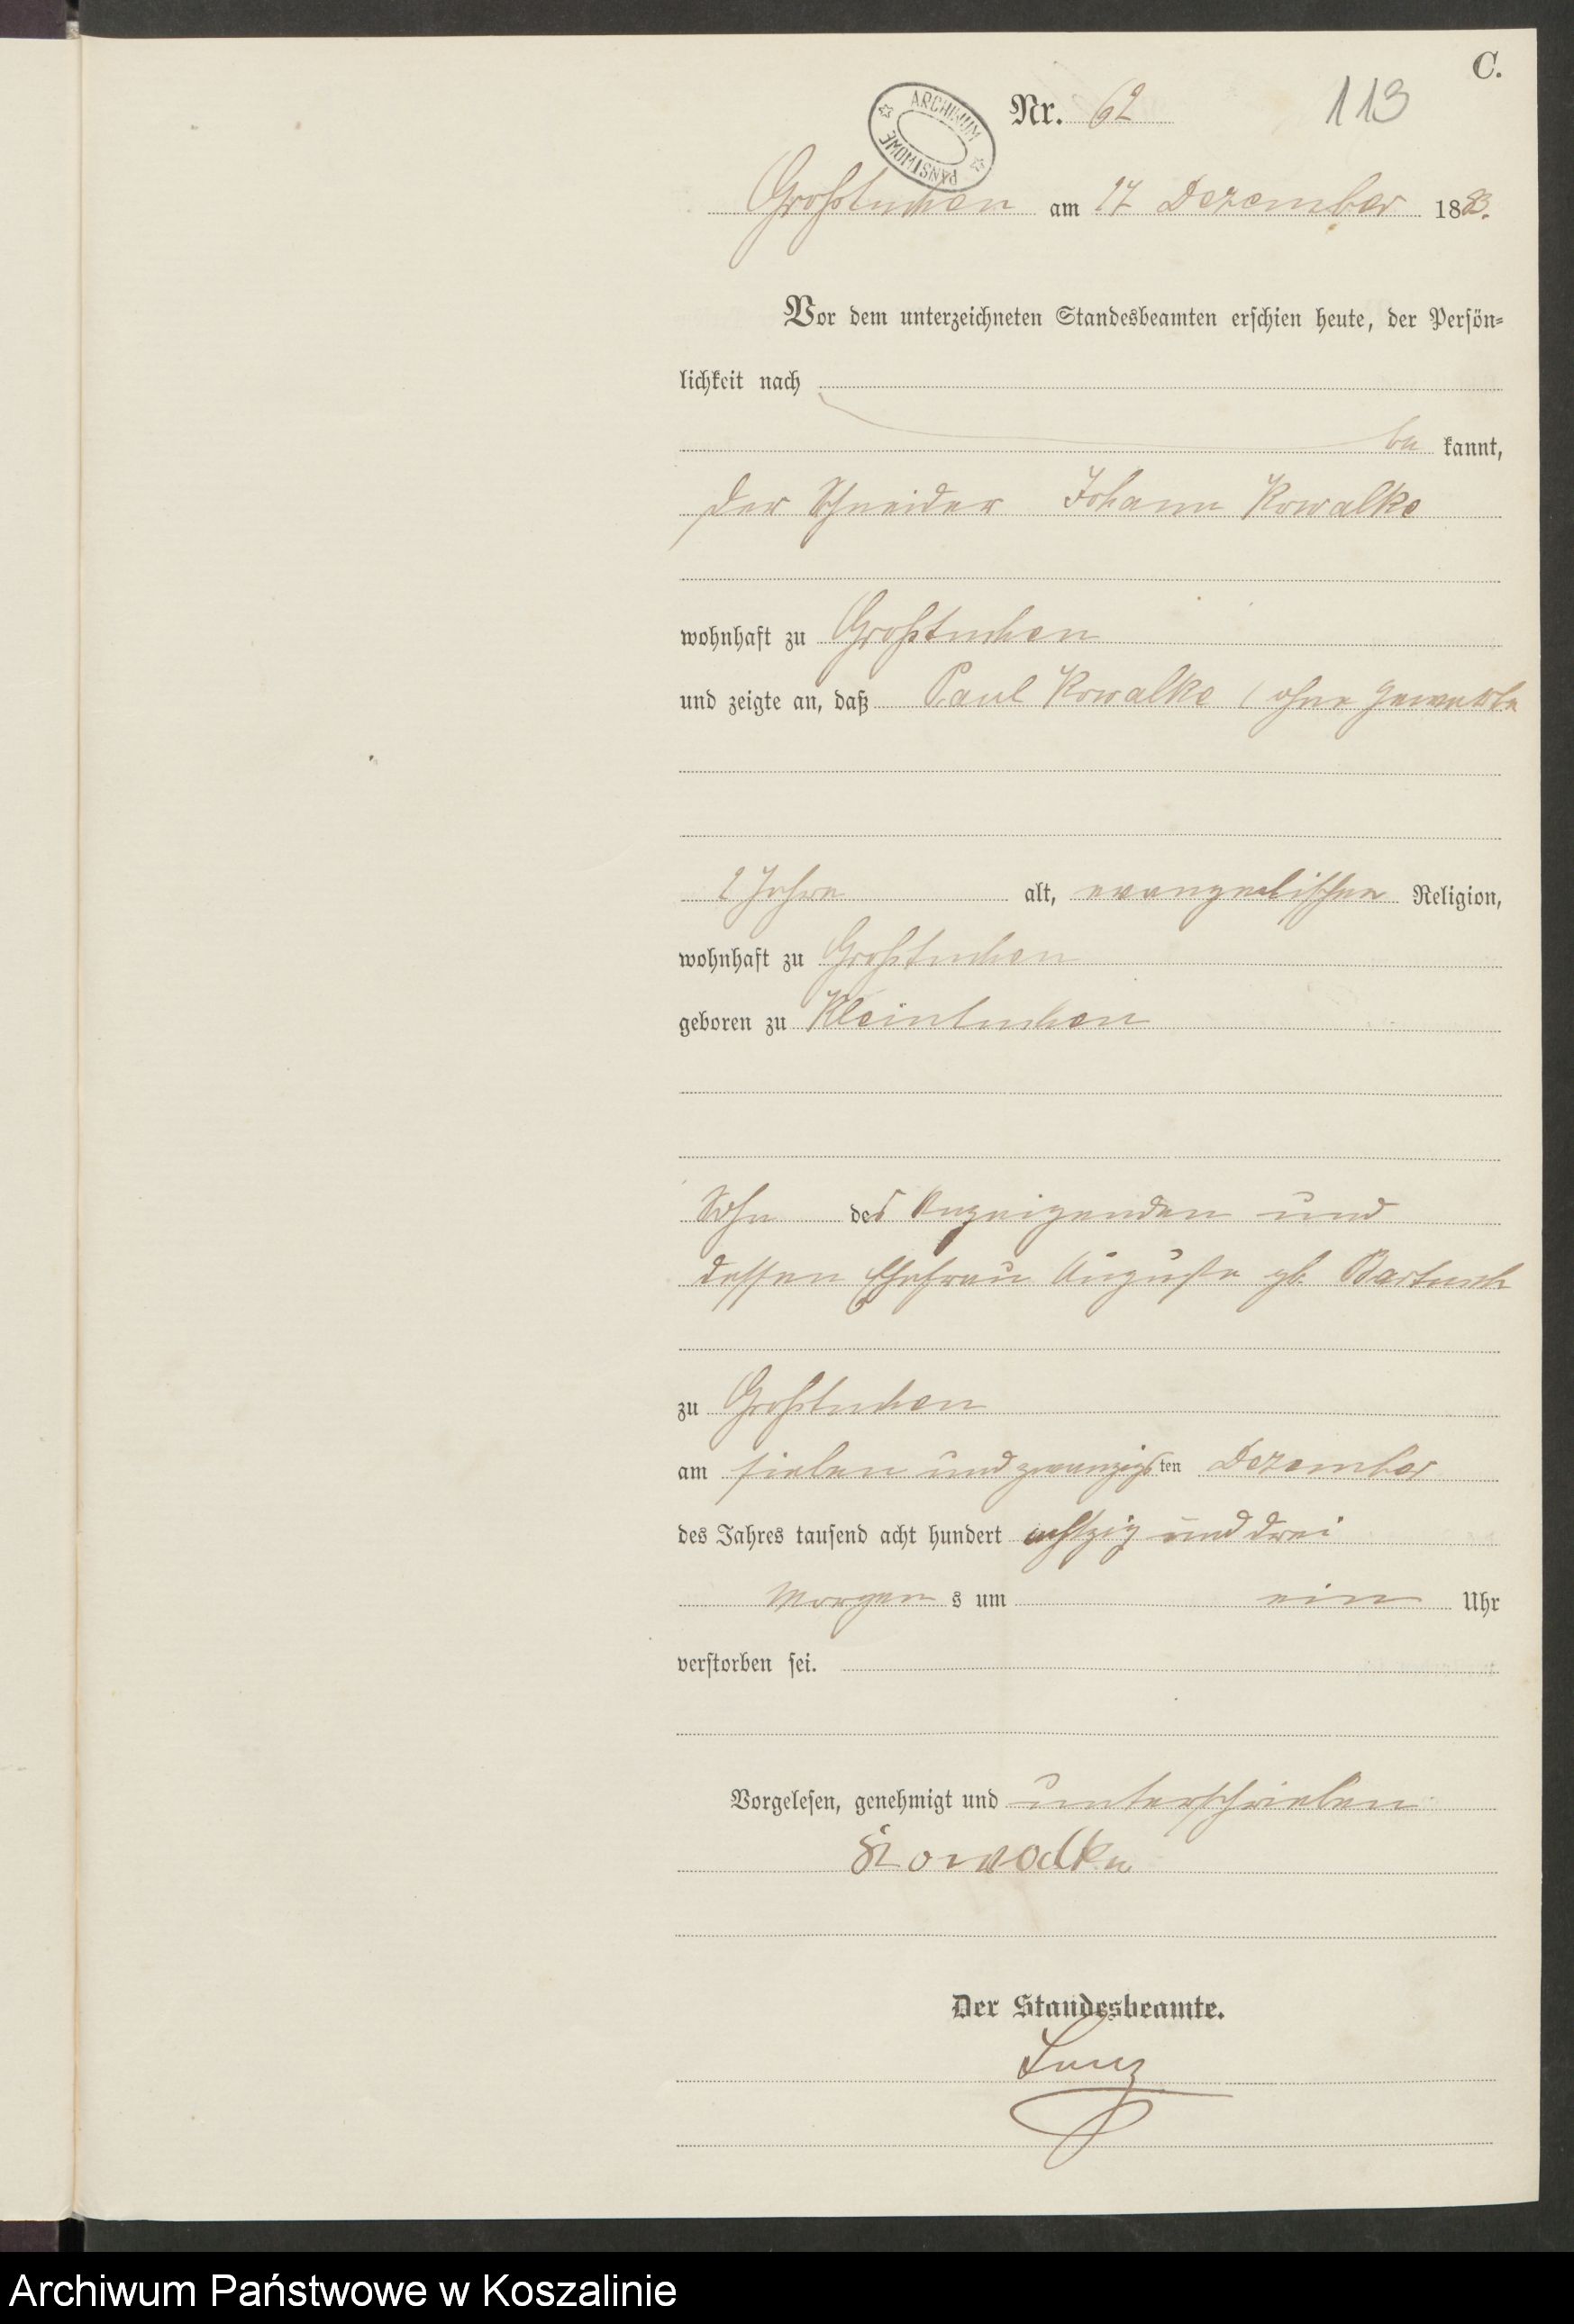 C.
Nr. 62 113
ARCHIWUM PAŃSTWOWE
Großtuchen am 27 Dezember 1883.
Vor dem unterzeichneten Standesbeamten erschien heute, der Persön-
lichkeit nach
be kannt,
der Schneider Johann Kowalke
wohnhaft zu Großtuchen
und zeigte an, daß Paul Kowalke, ohne Gewerbe
2 Jahre alt, evangelischer Religion,
wohnhaft zu Großtuchen
geboren zu Kleintuchen
Sohn des Anzeigenden und
dessen Ehefrau Auguste gb. Bartusch
zu Großtuchen
am sieben und zwanzigsten Dezember
des Jahres tausend acht hundert achtzig und drei
Morgens um ein Uhr
verstorben sei.
Vorgelesen, genehmigt und unterschrieben
Kowalke
Der Standesbeamte.
Archiwum Państwowe w Koszalinie